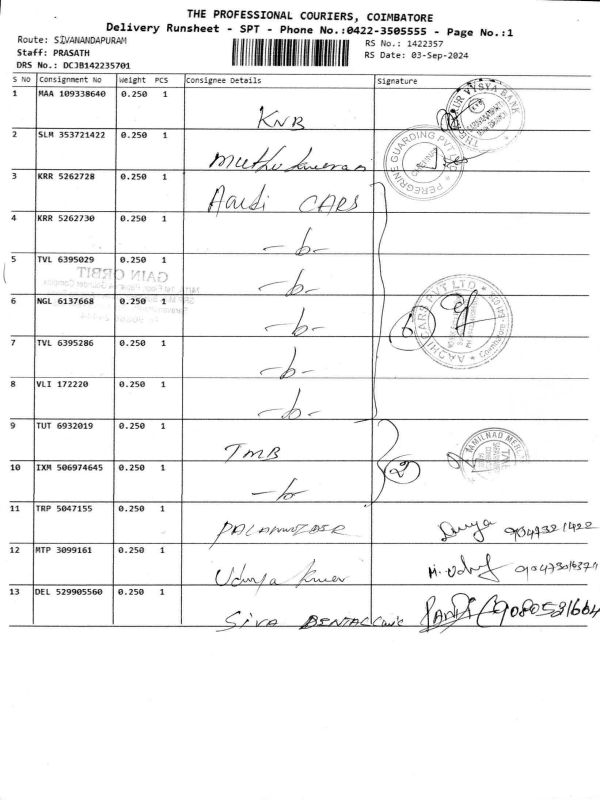 THE PROFESSIONAL COURIERS, COIMBATORE
Delivery Runsheet - SPT - Phone No.:0422-3505555 - Page No.:1
Route: SIVANANDAPURAM
RS No.: 1422357
Staff: PRASATH
RS Date: 03-Sep-2024
DRS No.: DCJB142235701
S No Consignment No Weight PCS Consignee Details Signature
1 MAA 109338640 0.250 1 KNB
2 SLM 353721422 0.250 1
PEREGRINE GUARDING PVT LTD
3 KRR 5262728 0.250 1 Aardi CARS
4 KRR 5262730 0.250 1 -b-
5 TVL 6395029 0.250 1 -b-
GAIN ORBIT
6 NGL 6137668 0.250 1 -b-
6
AADHI CARS PVT LTD
7 TVL 6395286 0.250 1 -b-
8 VLI 172220 0.250 1 -b-
9 TUT 6932019 0.250 1 TMB
10 IXM 506974645 0.250 1 -b-
2
11 TRP 5047155 0.250 1
12 MTP 3099161 0.250 1 Udhya
13 DEL 529905560 0.250 1 SIVA DENTAL